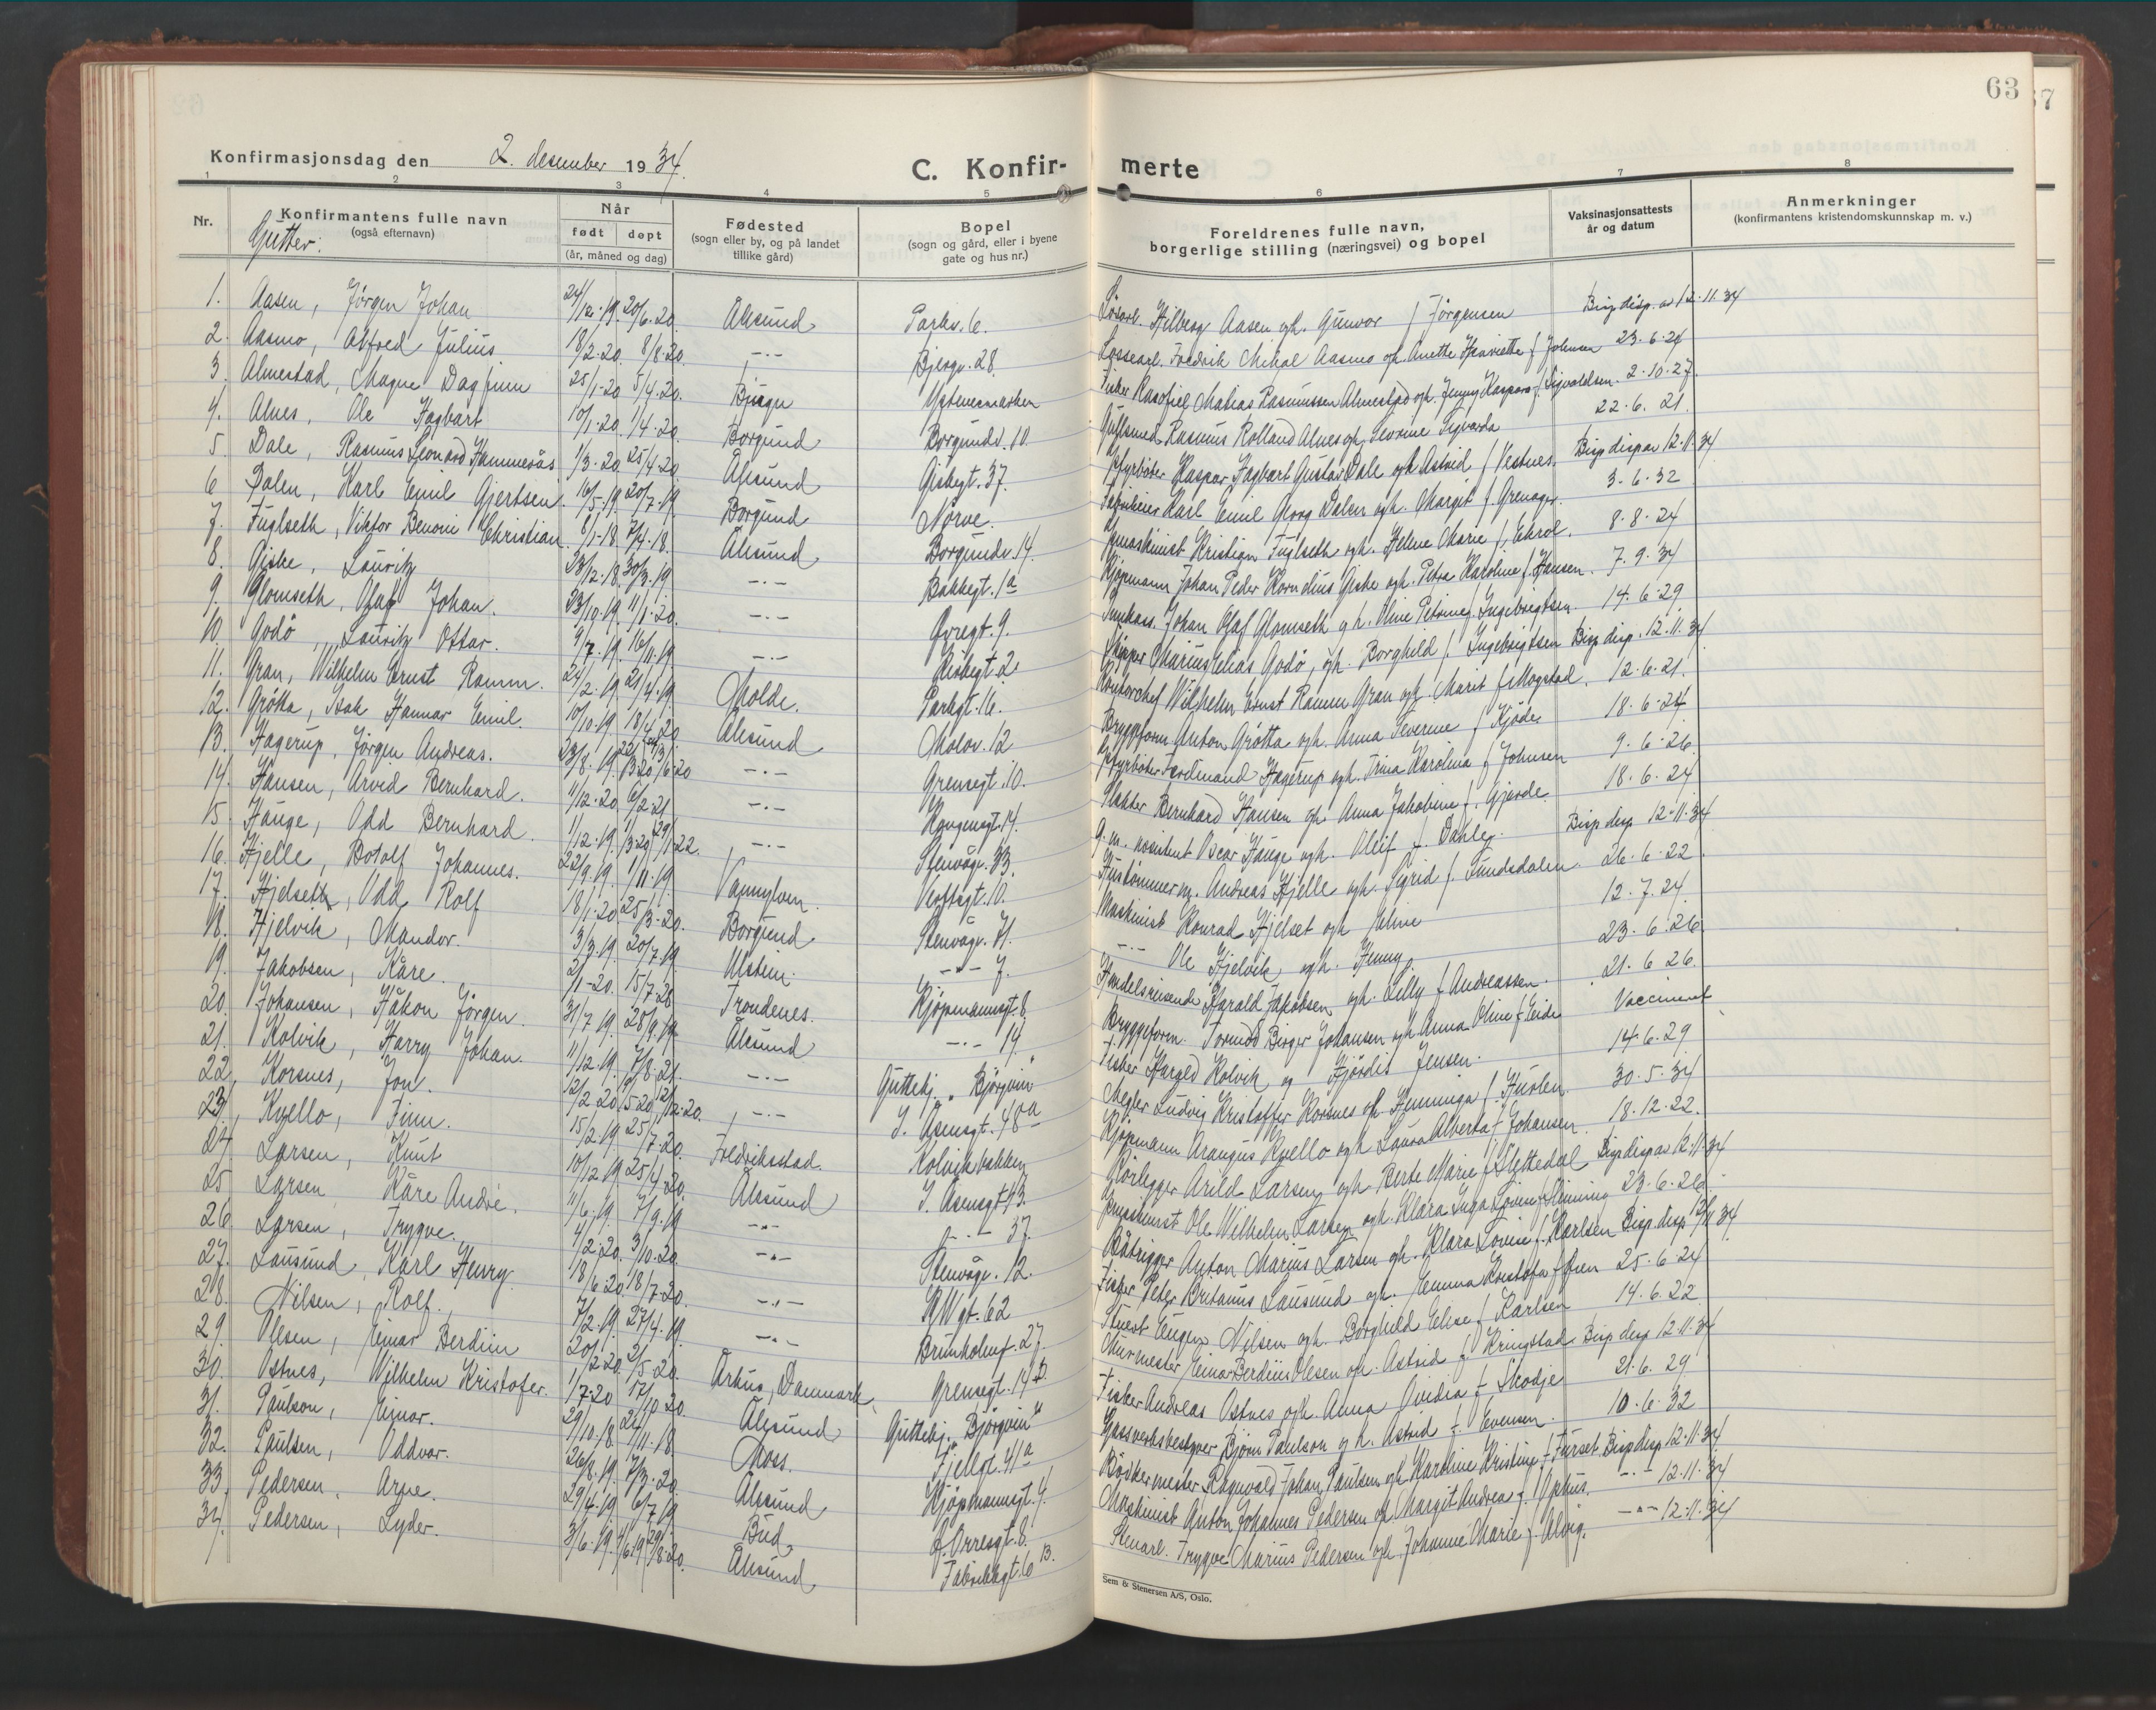 63
Konfirmasjonsdag den 2. desember 1934.
C. Konfir-
merte
1 2 3 4 5 6 7 8
Nr.
Konfirmantens fulle navn
(også efternavn)
Gutter:
Når
født døpt
(år, måned og dag)
Fødested
(sogn eller by, og på landet
tillike gård)
Bopel
(sogn og gård, eller i byene
gate og hus nr.)
Foreldrenes fulle navn,
borgerlige stilling (næringsvei) og bopel
Vaksinasjonsattests
år og datum
Anmerkninger
(konfirmantens kristendomskunnskap m. v.)
1. Aasen, Jörgen Johan 24/12.19. 20/6.20. Ålesund Parkv. 6. Hilberg Aasen og h. Gunvor f Jörgensen Bisp disp. av 12.11.34
2. Aasmo, Alfred Julius. 18/2.20. 8/8.20. -.- Bjergv. 28. Lossearb. Fredrik Mikal Aasmo og h. Anette Henriette f Johnsen 23.6.24
3. Almestad, Magne Dagfinn 25/1.20 5/4.20. Ystenesmarken Fisker Mathias Rasmussen Almestad og h. Jenny Kaspara f Sigvaldsen. 2.10.27.
4. Alnes, Ole Hagbart 10/1.20. 1/4.20. Borgund Borgundv. 10. Gullsmed Rasmus Rolland Alnes og h. Severine Sigvarda 22.6.21.
5. Dale, Rasmus Leonard Hammerås 1/3.20. 25/4.20. Ålesund Giskegt. 37. Fyrböter Kaspar Hagbart Gustav Dale og h. Astrid f Vestnes. Bisp disp av 12.11.34
6 Dalen, Karl Emil Gjertsen. 16/5.19. 20/7.19. Borgund Nörve. Karl Emil Georg Dalen og h. Margit f. Grenager. 3.6.32
7. Fuglseth, Viktor Benoni Christian. 8/1.18. 7/4.18. Ålesund Borgundv. 14. Kristian Fuglseth og h. Helene Marie f. Ekrol. 8.8.24
8. Giske, Lauritz 23/12.18. 30/3.19. -.- Bakkegt. 1a Kjöpmann Johan Peder Kornelius Giske og h. Petra Karoline f. Hansen. 7.9.34
9. Glomseth, Olaf Johan. 23/10.19. 11/1.20. -.- Övregt. 9. Johan Olaf Glomseth og h. Oline Petrine f. Ingebrigtsen. 14.6.29
10. Godö, Lauritz Ottar. 9/7.19. 16/11.19. -.- Kirkegt. 2. Skipper Marius Elias Godö, og h. Borghild f. Ingebrigtsen Bisp disp. 12.11.34
11. Gran, Wilhelm Ernst Ramm. 24/2.19. 21/4.19. Molde. Parkgt. 16. Kontorchef Wilhelm Ernst Ramm Gran og h. Marit f. Mogstad. 12.6.21.
12. Grötta, Isak Hannar Emil. 10/10.19. 18/4.20 Ålesund Molov. 12 Bryggeform Anton Grötta og h. Anna Severine f Kjöde 18.6.24
13. Hagerup, Jörgen Andreas. 23/8.19. -.- Grensegt. 10. Fyrböter Ferdinand Hagerup og h. Trina Karolina f Johnsen 9.6.26.
14. Hansen, Arvid Bernhard. 11/12.20. 6/2.21 -.- Kongensgt. 14. Slakter Bernhard Hansen og h. Anna Jakobine f. Gjerde. 18.6.24
15. Hauge, Odd Bernhard. 1/12.19. 29/1.22. -.- Stenvågv. 83. Oscar Hauge og h. Oleif f. Dahle. Bisp disp 12.11.34
16. Hjelle, Botolf Johannes. 22/9.19. 1/11.19. Vannylven. Verftsgt. 10. Hustömmerm. Andreas Hjelle og h. Sigrid f. Tundsdalen. 26.6.22.
17. Hjelseth, Odd Rolf 18/1.20. 25/3.20. Borgund Stenvågv. 71. Maskinist Konrad Hjelset og h. Eline 12.7.24.
18. Hjelvik, Mandor. 3/3.19. 20/7.19. Ulstein. -.- 7. -.- Ole Hjelvik og h. Henny. 23.6.26
19. Jakobsen, Kåre. 2/1.20. 15/7.28. Trondenes. Kjöpmannsgt. 8. Handelsreisende Harald Jakobsen og h. Lilly f Andreassen. 21.6.26.
20. Johansen, Håkon Jörgen. 31/7.19. 28/9.19. Ålesund -.- 19. Bryggeform. Tormod Birger Johansen og h. Anna Oline f. Eide Vaccinert
21. Kolvik, Harry Johan. 11/12.19. 7/8.21. -.- Guttehj. "Björgvin" Fisker Harald Kolvik og Hjördis Jensen. 14.6.29
22. Korsnes, Jon. 12/2.20. 12/12.20. -.- J. Åsensgt. 48a Megler Ludvig Kristoffer Korsnes og h. Henninga f. Huslen. 30.5.34
23. Kvello, Finn. 15/2.19. 25/7.20. Fredriksstad. Kolvikbakken Kjöpmann Arangus Kvello og h. Laura Alberta f Johansen. 18.12.22.
24. Larsen, Knut 10/12.19. 25/4.20. Ålesund J. Åsensgt. 43. Rörlegger Arild Larsen og h. Berte Marie f Slettedal Bisp disp av 12.11.34
25. Larsen, Kåre André. 11/6.19. 7/9.19 -.- -.- 37. Ole Wilhelm Larsen og h. Klara Inga Lovise f. Vinning 23.6.26.
26. Larsen, Trygve. 4/2.20. 3/10.20. -.- Stenvågv. 12. Båtrigger Anton Marius Larsen og h. Klara Lovise f. Karlsen Bisp. disp 12/11 34
27. Lausund, Karl Henry. 18/6.20. 18/7.20. -.- K.W.gt. 62 Fisker Peter Britanus Lausund og h. Emma Kristofa f. Öien 25.6.24
28. Nilsen, Rolf. 7/2.19. 27/4.19. -.- Brunholmg. 27. Stuert Eugen Nilsen og h. Borghild Eline f. Karlsen 14.6.22
29. Olesen, Einar Berdiin 20/2.20. 2/5.20. Århus, Danmark. Grensegt. 14 b. Murmester Einar Berdiin Olesen og h. Astrid f Kringstad Bisp disp 12.11.34
30. Ostnes, Wilhelm Kristofer. 1/7.20 17/10.20. Ålesund Guttehj. "Björgvin" Fisker Andreas Ostnes og h. Anna Ovidia f. Skodje 21.6.29
31. Paulson, Einar. 29/10.18. 24/11.18 Moss. Fjellgt. 41a Gassverksbestyrer Björn Paulson og h. Astrid f. Evensen. 10.6.32
32. Paulsen, Oddvar. 26/8.19. 7/3.20. Ålesund Kjöpmannsgt. 4. Bödkermester Ragnvald Johan Paulsen og h. Karoline Kristine f Furset Bisp disp 12.11.34
33. Pedersen, Arne. 29/4.19. 6/7.19. Bud Ö. Orresgt. 8. Maskinist Anton Johannes Pedersen og h. Margit Andrea f. Ophus. -.- 12.11.34
34. Pedersen, Lyder. 3/6.19. 29/8.20. Ålesund Fabrikkgt. 6 B. Stenarb. Trygve Marius Pedersen og h. Johanne Marie f. Alvig. -.- 12.11.34
Sem & Stenersen A/S, Oslo.